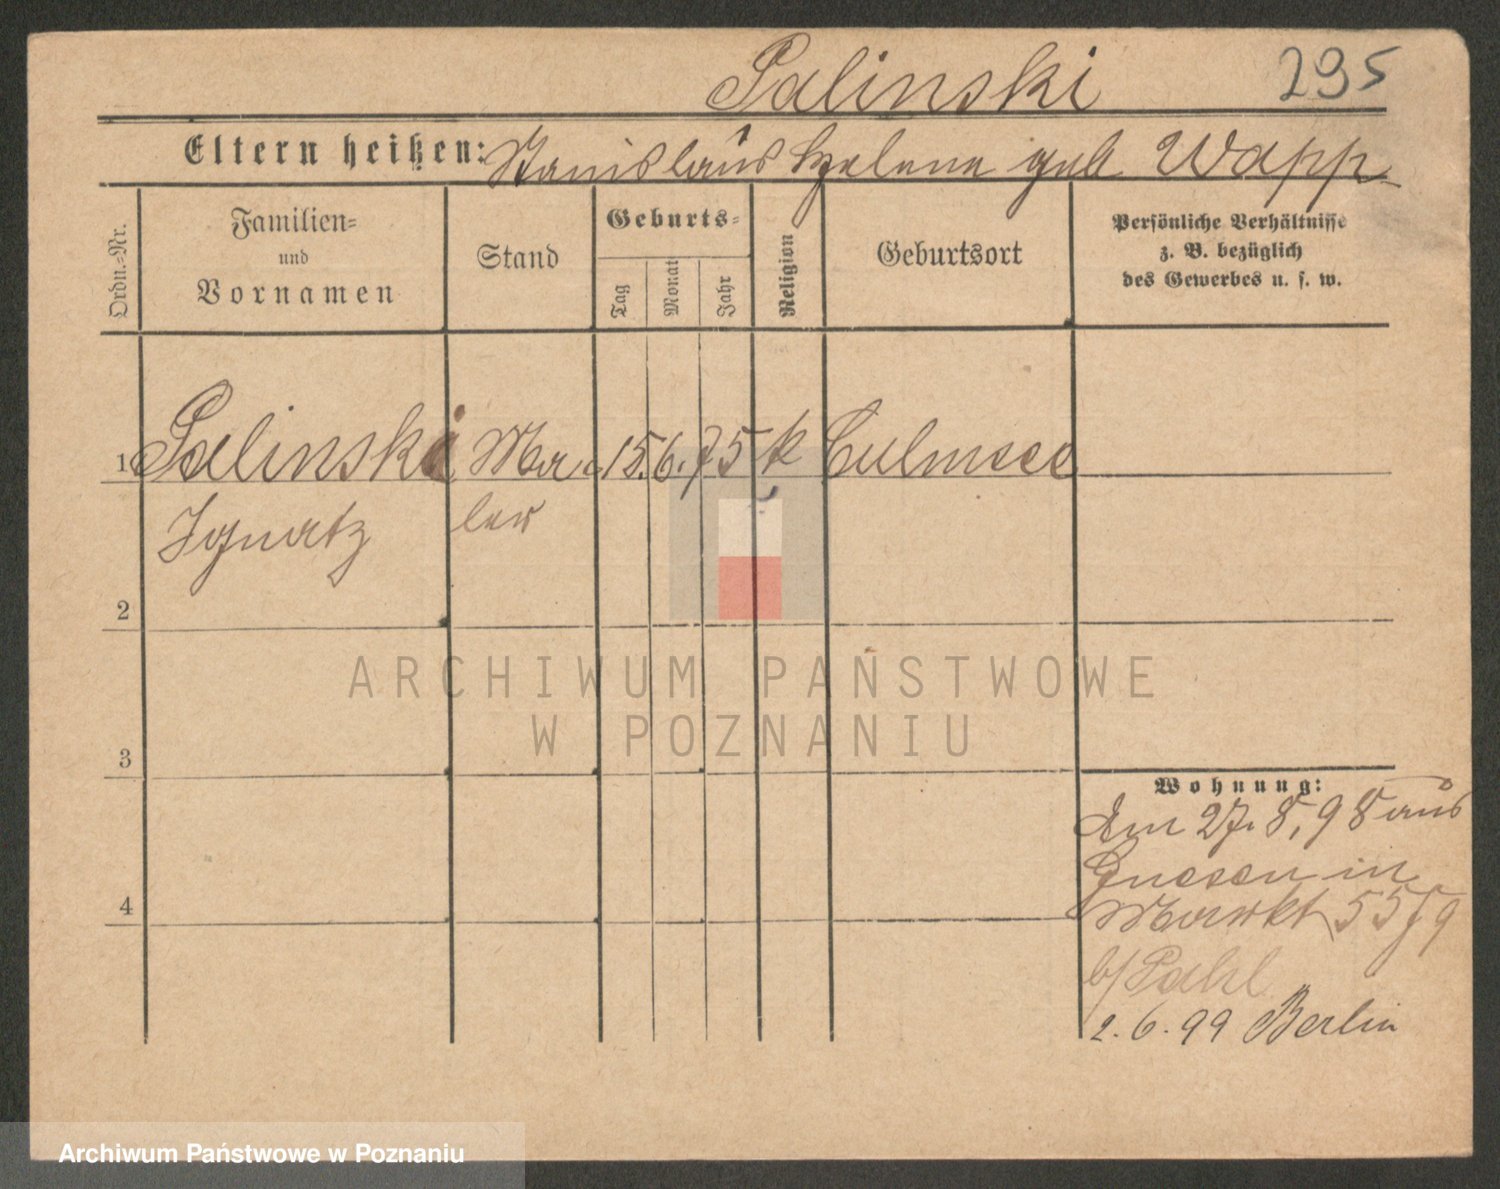 Salinski 295
Eltern heißen: Stanislaus Helene geb Wapp
Ordn.=Nr.
Familien=
und
Vornamen
Stand
Geburts=
Tag
Monat
Jahr
Religion
Geburtsort
Persönliche Verhältnisse
z. B. bezüglich
des Gewerbes u. s. w.
1 Salinski Ma- 15. 6. 75 k Culmsee
Ignatz ler
2
3
4
Wohnung:
Am 27. 8. 98 aus
Gnesen in
Markt 55
b/ Pahl
2. 6. 99 Berlin
ARCHIWUM PAŃSTWOWE
W POZNANIU
Archiwum Państwowe w Poznaniu